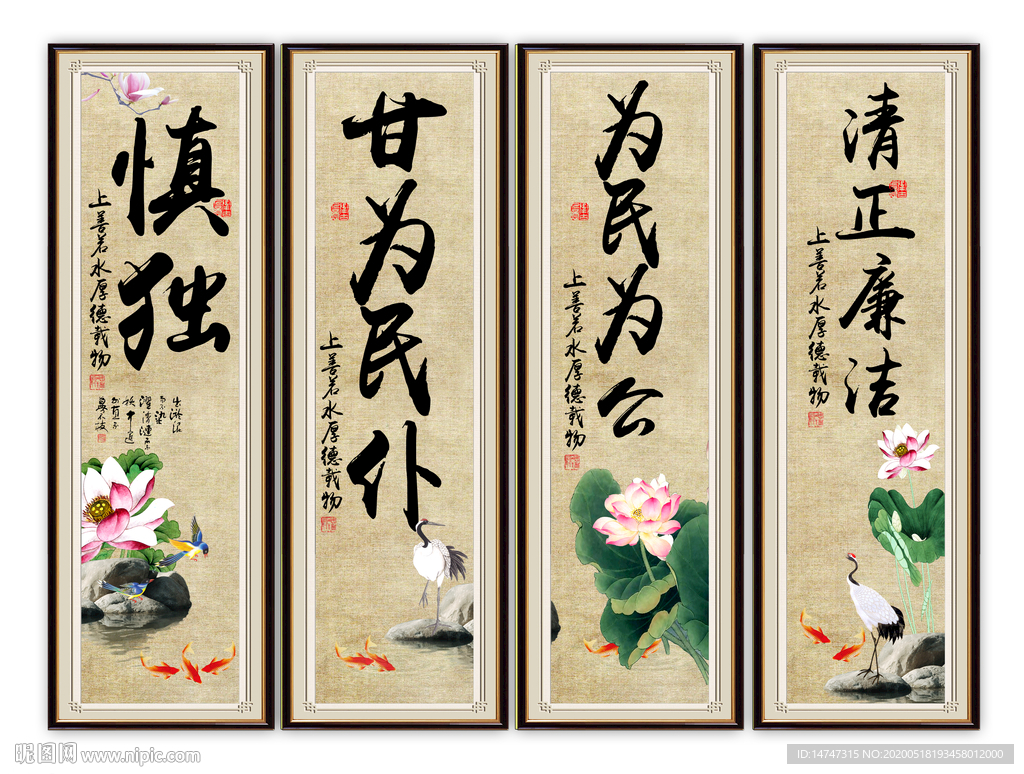 慎独
上善若水厚德载物
出淤泥
而不染
濯清涟而不
妖中通
外直不
蔓不枝
甘为民仆
上善若水厚德载物
为民为公
上善若水厚德载物
清正廉洁
上善若水厚德载物
昵图网 www.nipic.com
ID:14747315 NO:20200518193458012000